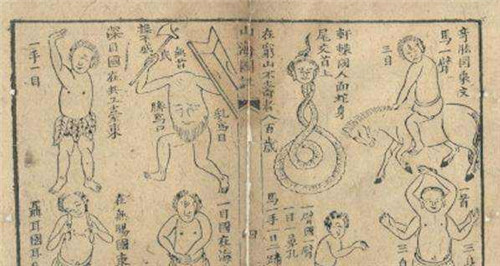 奇肱國乘文
馬一臂
三目
軒轅國人面蛇身
尾交首上
在窮山不壽者八百歲
山海
乳為目
臍為口
無首
操干戚
深目國在共工臺東
一手一目
三身
一臂國一臂
一目一鼻孔
一目國在海
在無腸國東
聶耳國